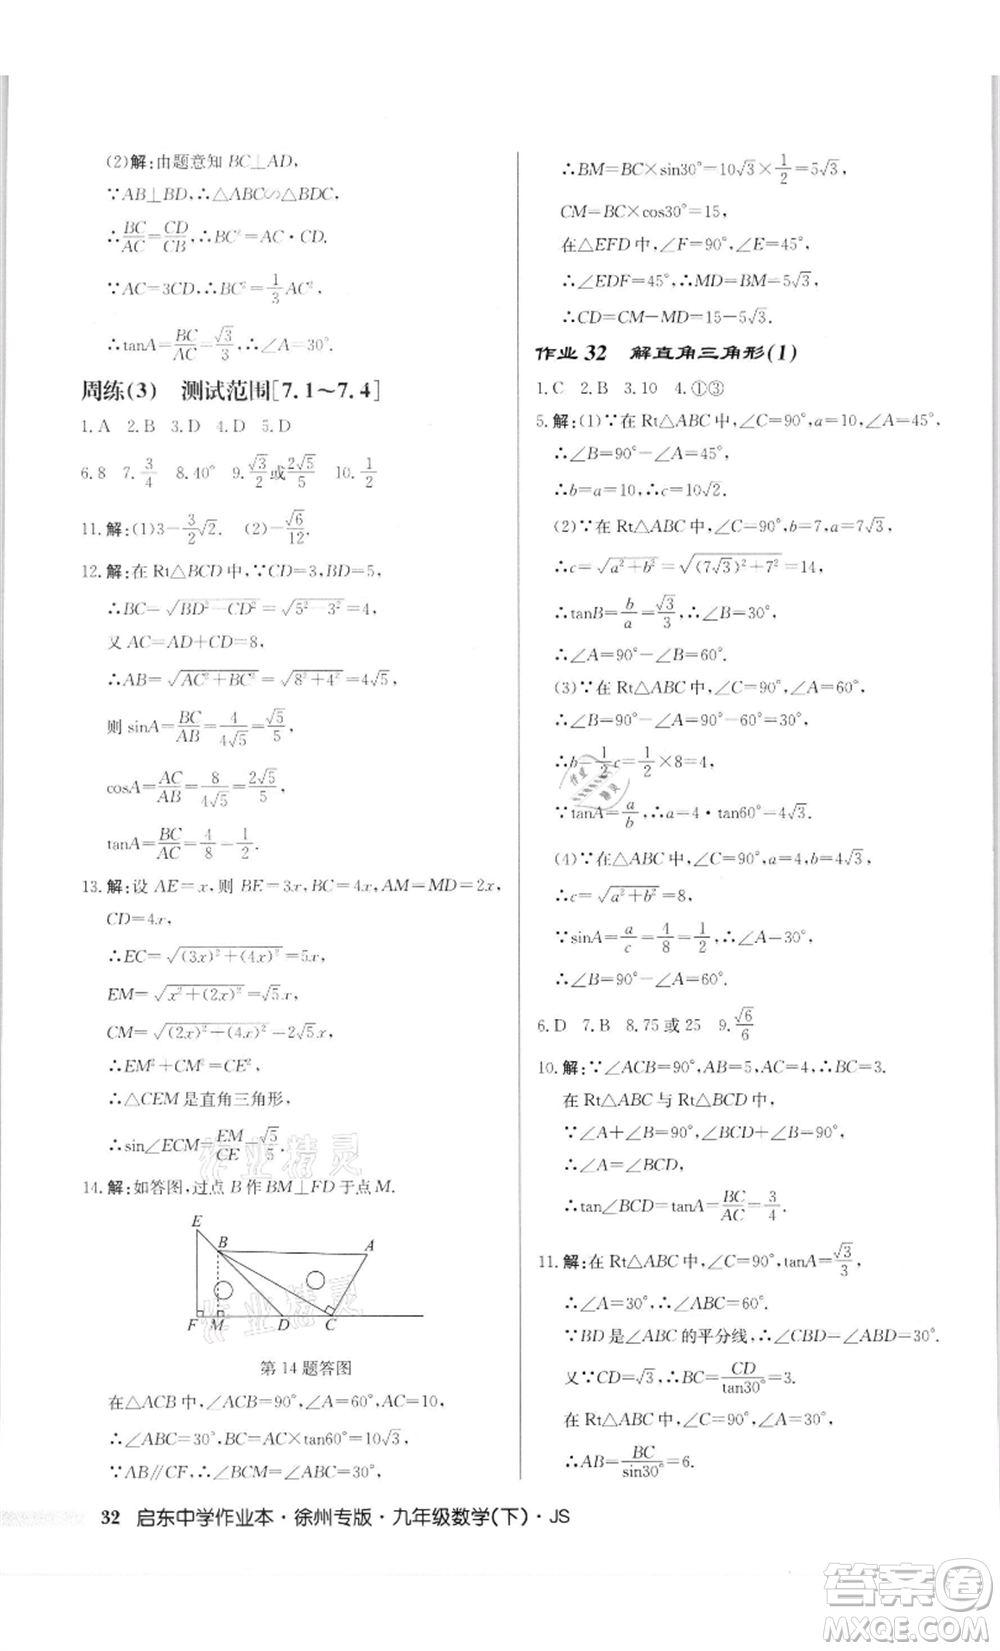 (2)解:由题意知 BC⊥AD,
∵AB⊥BD,∴△ABC∽△BDC,
∴BC/AC=CD/CB,∴BC²=AC·CD,
∵AC=3CD,∴BC²=1/3AC²,
∴tanA=BC/AC=√3/3,∴∠A=30°.
周练(3) 测试范围[7.1～7.4]
1.A 2.B 3.D 4.D 5.D
6.8 7.3/4 8.40° 9.√3/2或2√5/5 10.1/2
11.解:(1)3−3/2√2. (2)−√6/12.
12.解:在 Rt△BCD 中,∵CD=3,BD=5,
∴BC=√(BD²−CD²)=√(5²−3²)=4,
又 AC=AD+CD=8,
∴AB=√(AC²+BC²)=√(8²+4²)=4√5,
则 sinA=BC/AB=4/(4√5)=√5/5,
cosA=AC/AB=8/(4√5)=2√5/5,
tanA=BC/AC=4/8=1/2.
13.解:设 AE=x,则 BE=3x,BC=4x,AM=MD=2x,
CD=4x,
∴EC=√((3x)²+(4x)²)=5x,
EM=√(x²+(2x)²)=√5x,
CM=√((2x)²+(4x)²)=2√5x,
∴EM²+CM²=CE²,
∴△CEM 是直角三角形,
∴sin∠ECM=EM/CE=√5/5.
14.解:如答图,过点 B 作 BM⊥FD 于点 M.
E
B
A
F M D C
第 14 题答图
在△ACB 中,∠ACB=90°,∠A=60°,AC=10,
∴∠ABC=30°,BC=AC×tan60°=10√3,
∵AB∥CF,∴∠BCM=∠ABC=30°.
∴BM=BC×sin30°=10√3×1/2=5√3,
CM=BC×cos30°=15,
在△EFD 中,∠F=90°,∠E=45°,
∴∠EDF=45°,∴MD=BM=5√3,
∴CD=CM−MD=15−5√3.
作业 32 解直角三角形(1)
1.C 2.B 3.10 4.①③
5.解:(1)∵在 Rt△ABC 中,∠C=90°,a=10,∠A=45°,
∴∠B=90°−∠A=45°,
∴b=a=10,∴c=10√2.
(2)∵在 Rt△ABC 中,∠C=90°,b=7,a=7√3,
∴c=√(a²+b²)=√((7√3)²+7²)=14,
∴tanB=b/a=√3/3,∴∠B=30°,
∴∠A=90°−∠B=60°.
(3)∵在 Rt△ABC 中,∠C=90°,∠A=60°,
∴∠B=90°−∠A=90°−60°=30°,
∴b=1/2c=4.
∵tanA=a/b,∴a=4·tan60°=4√3.
(4)∵在△ABC 中,∠C=90°,a=4,b=4√3,
∴c=√(a²+b²)=8,
∵sinA=a/c=4/8=1/2,∴∠A=30°,
∴∠B=90°−∠A=60°.
6.D 7.B 8.75或25 9.√6/6
10.解:∵∠ACB=90°,AB=5,AC=4,∴BC=3.
在 Rt△ABC 与 Rt△BCD 中,
∵∠A+∠B=90°,∠BCD+∠B=90°,
∴∠A=∠BCD,
∴tan∠BCD=tanA=BC/AC=3/4.
11.解:在 Rt△ABC 中,∠C=90°,tanA=√3/3,
∴∠A=30°,∴∠ABC=60°.
∵BD 是∠ABC 的平分线,∴∠CBD=∠ABD=30°.
又∵CD=√3,∴BC=CD/tan30°=3.
在 Rt△ABC 中,∠C=90°,∠A=30°,
∴AB=BC/sin30°=6.
32 启东中学作业本·徐州专版·九年级数学(下)·JS
作业精灵
作业精灵
作业精灵
答案圈
MXQE.COM